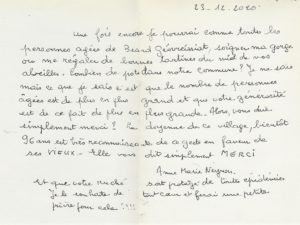 23.12.2020
une fois encore je pourrai comme toutes les
personnes agées de Béard Géovreissiat, soigner ma gorge
ou me régaler de bonnes tartines du miel de vos
abeilles. Combien de pots dans notre commune ? je ne sais
mais ce que je sais c'est que le nombre de personnes
âgées est de plus en plus grand et que votre générosité
est de ce fait de plus en plus grande. Alors, vous dire
simplement merci ? La doyenne de ce village, bientôt
96 ans est très reconnaissante de ce geste en faveur de
ses VIEUX. Elle vous dit simplement MERCI
Anne Marie Neyron
Et que votre ruche
soit protégée de toutes épidémies
Je le souhaite de
tout cœur et ferai une petite
prière pour cela !!!!